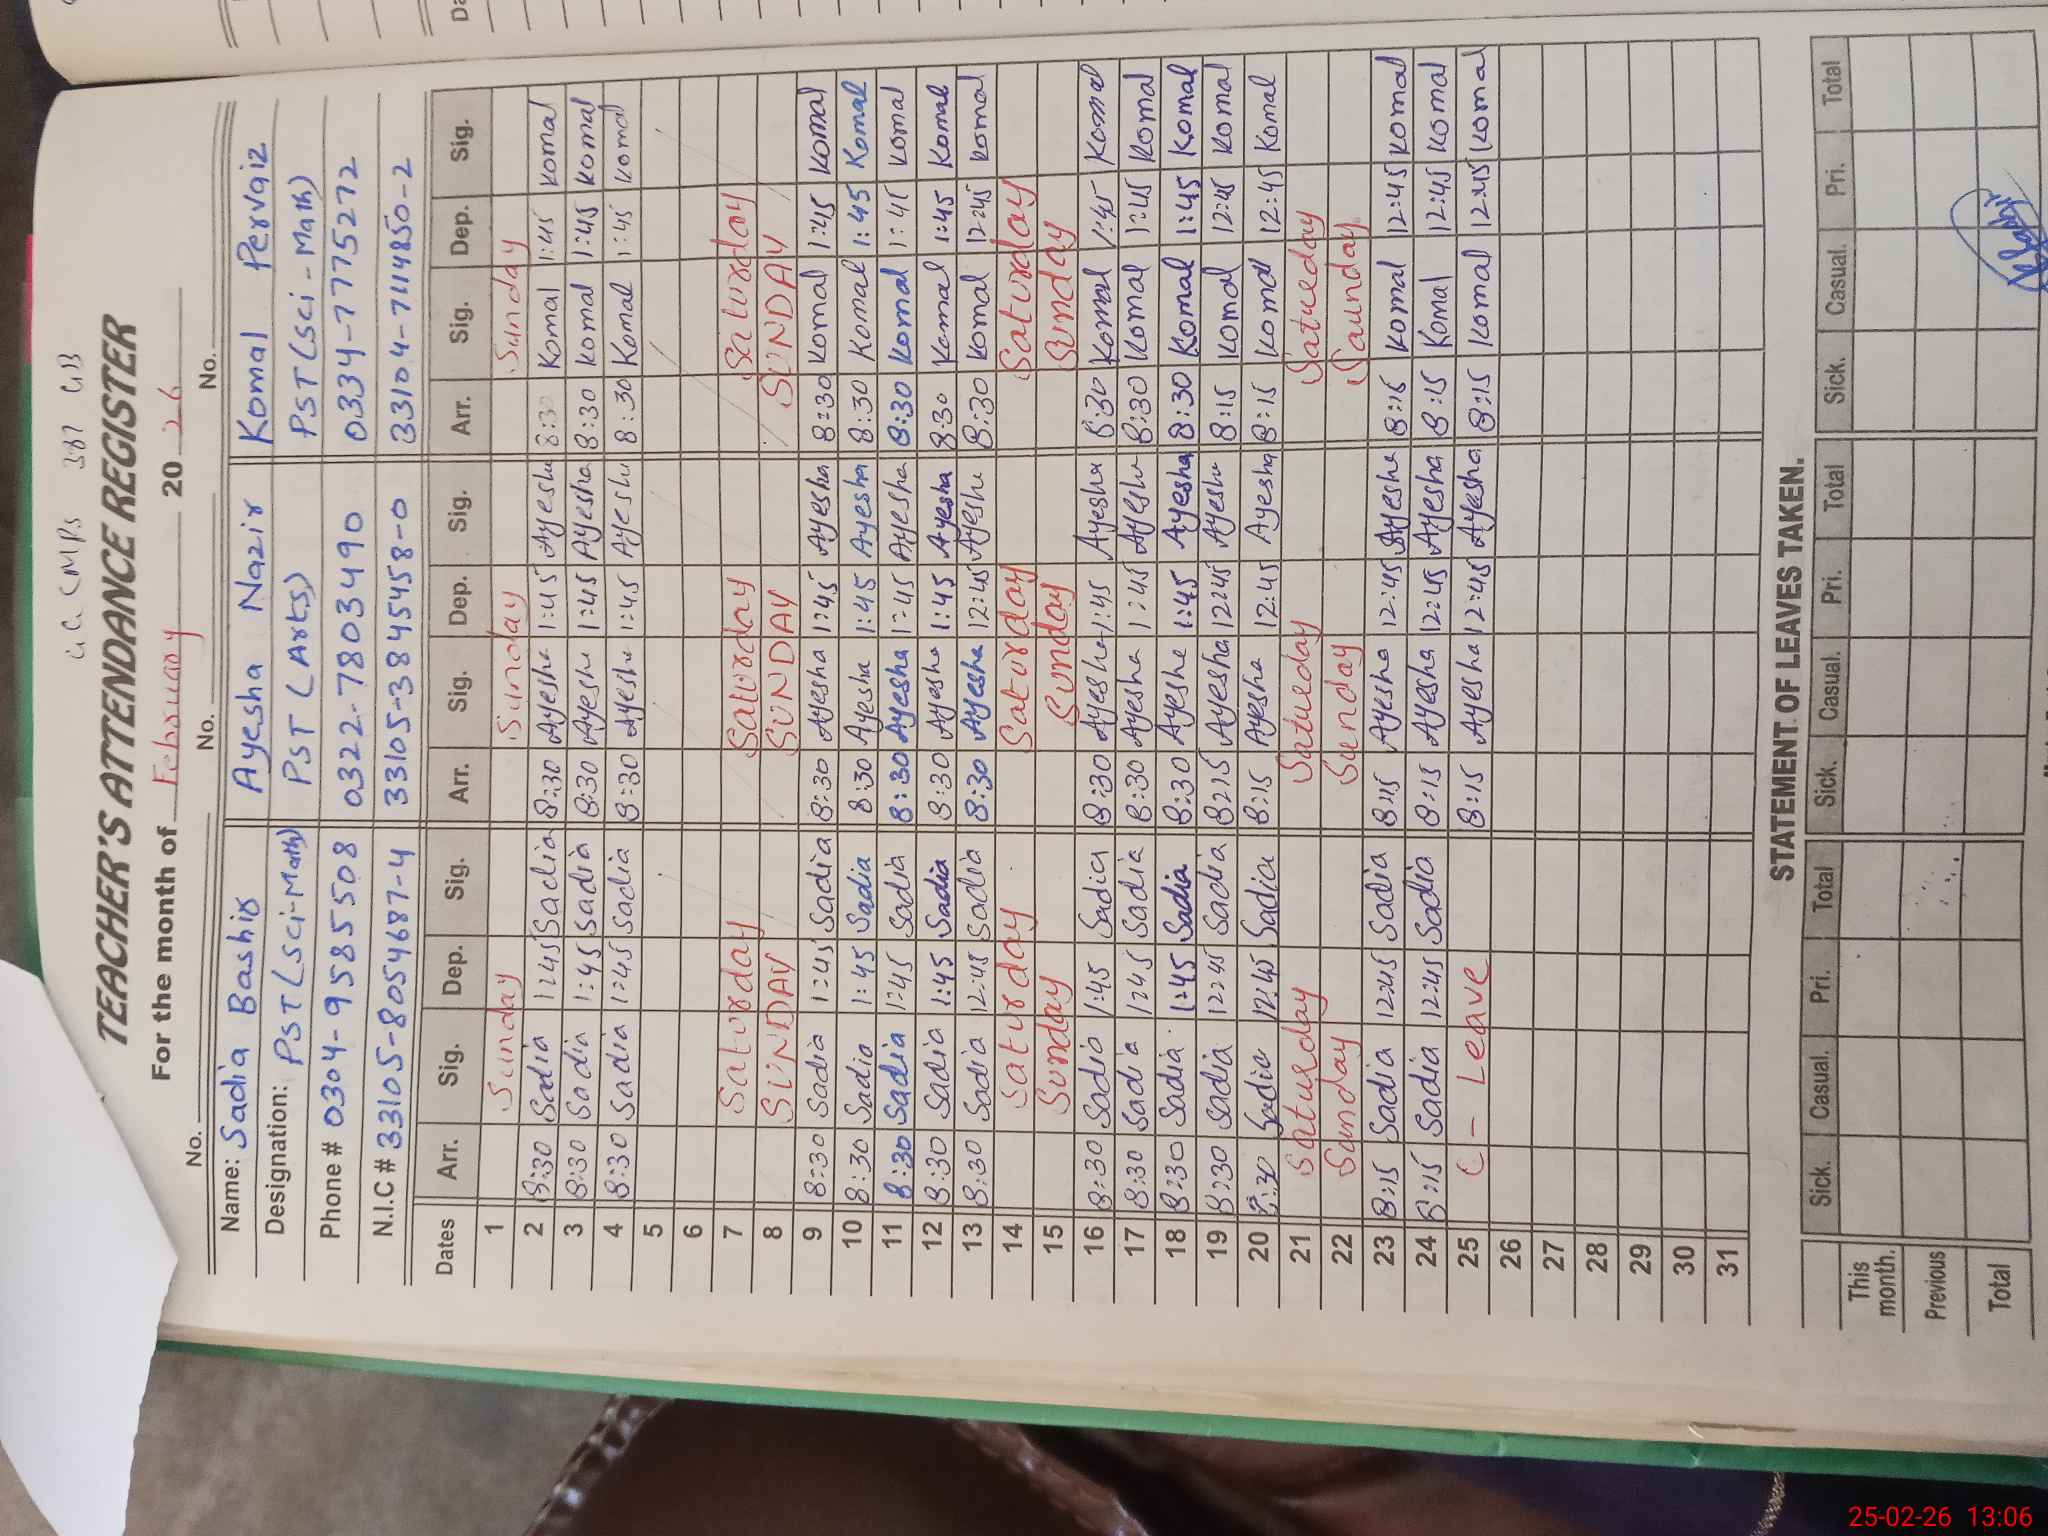 G.G CMPS 387 GB
TEACHER'S ATTENDANCE REGISTER
For the month of February 20 26
No. No. No.
Name: Sadia Bashir Ayesha Nazir Komal Pervaiz
Designation: PST (Sci-Math) PST (Arts) PST (Sci-Math)
Phone # 0304-9585508 0322-7803490 0334-7775272
N.I.C # 33105-8054687-4 33105-3845458-0 33104-7114850-2
Dates Arr. Sig. Dep. Sig. Arr. Sig. Dep. Sig. Arr. Sig. Dep. Sig.
1 Sunday Sunday Sunday
2 8:30 Sadia 1:45 Sadia 8:30 Ayesha 1:45 Ayesha 8:30 Komal 1:45 Komal
3 8:30 Sadia 1:45 Sadia 8:30 Ayesha 1:45 Ayesha 8:30 Komal 1:45 Komal
4 8:30 Sadia 1:45 Sadia 8:30 Ayesha 1:45 Ayesha 8:30 Komal 1:45 Komal
5
6
7 Saturday Saturday Saturday
8 SUNDAY SUNDAY SUNDAY
9 8:30 Sadia 1:45 Sadia 8:30 Ayesha 1:45 Ayesha 8:30 Komal 1:45 Komal
10 8:30 Sadia 1:45 Sadia 8:30 Ayesha 1:45 Ayesha 8:30 Komal 1:45 Komal
11 8:30 Sadia 1:45 Sadia 8:30 Ayesha 1:45 Ayesha 8:30 Komal 1:45 Komal
12 8:30 Sadia 1:45 Sadia 8:30 Ayesha 1:45 Ayesha 8:30 Komal 1:45 Komal
13 8:30 Sadia 12:45 Sadia 8:30 Ayesha 12:45 Ayesha 8:30 Komal 12:45 Komal
14 Saturday Saturday Saturday
15 Sunday Sunday Sunday
16 8:30 Sadia 1:45 Sadia 8:30 Ayesha 1:45 Ayesha 8:30 Komal 1:45 Komal
17 8:30 Sadia 1:45 Sadia 8:30 Ayesha 1:45 Ayesha 8:30 Komal 1:45 Komal
18 8:30 Sadia 1:45 Sadia 8:30 Ayesha 1:45 Ayesha 8:30 Komal 1:45 Komal
19 8:30 Sadia 12:45 Sadia 8:15 Ayesha 12:45 Ayesha 8:15 Komal 12:45 Komal
20 8:30 Sadia 12:45 Sadia 8:15 Ayesha 12:45 Ayesha 8:15 Komal 12:45 Komal
21 Saturday Satueday Satueday
22 Sunday Sunday Saunday
23 8:15 Sadia 12:45 Sadia 8:15 Ayesha 12:45 Ayesha 8:15 Komal 12:45 Komal
24 8:15 Sadia 12:45 Sadia 8:15 Ayesha 12:45 Ayesha 8:15 Komal 12:45 Komal
25 C - Leave 8:15 Ayesha 12:45 Ayesha 8:15 Komal 12:45 Komal
26
27
28
29
30
31
STATEMENT OF LEAVES TAKEN.
Sick. Casual. Pri. Total Sick. Casual. Pri. Total Sick. Casual. Pri. Total
This month.
Previous
Total
25-02-26 13:06